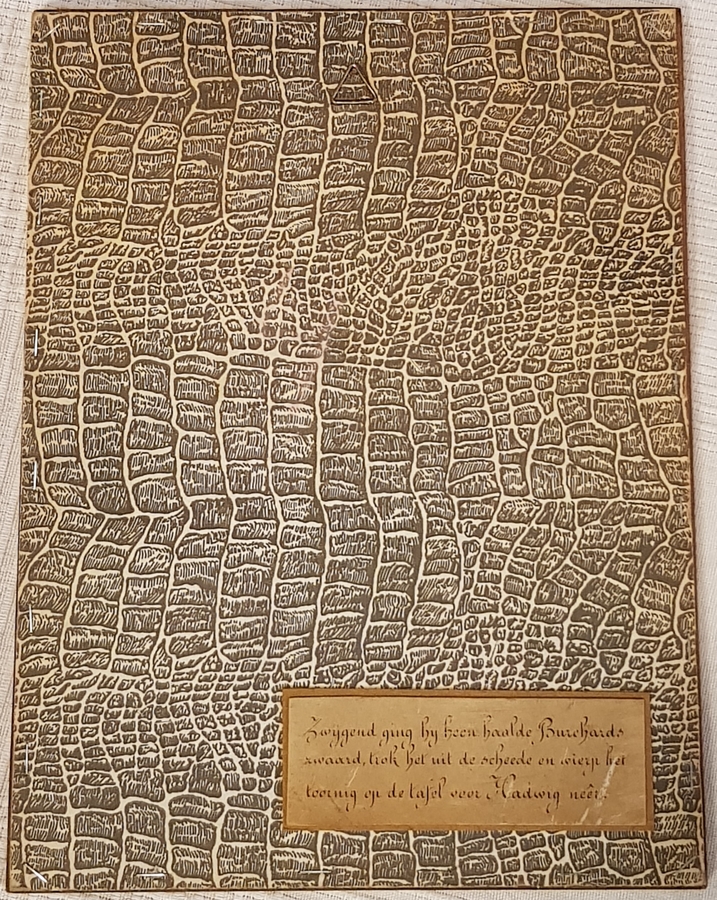 Zwijgend ging hy heen haalde Burchards
zwaard, trok het uit de scheede en wierp het
toornig op de tafel voor Hadwig neêr.